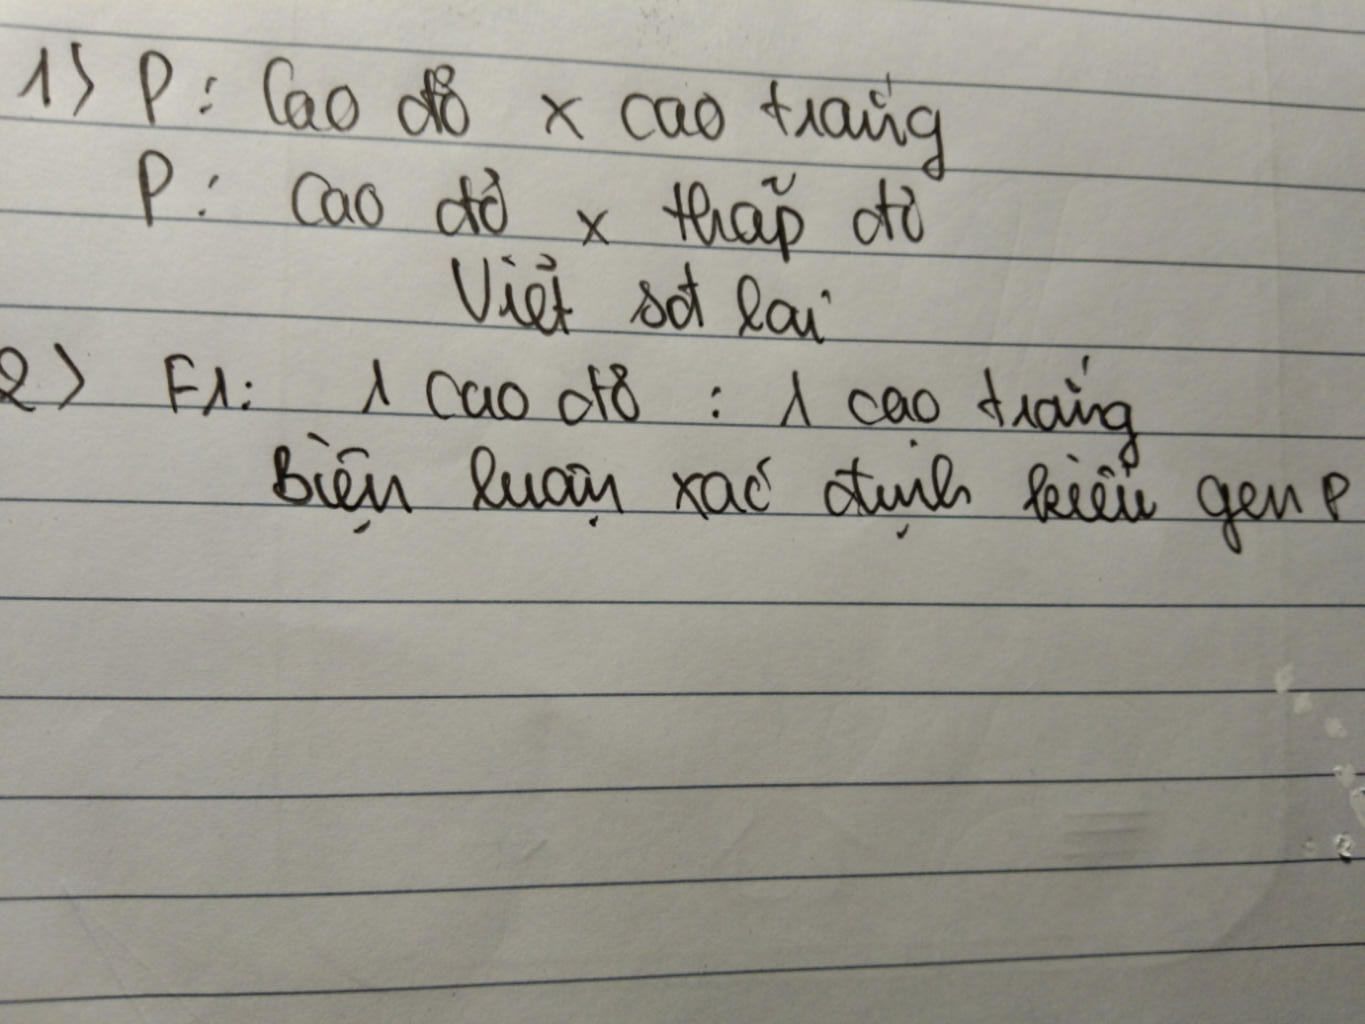 1) P: Cao đỏ x cao trắng
P: cao đỏ x thấp đỏ
Viết sđ lai
2) F1: 1 cao đỏ : 1 cao trắng
Biện luận xác định kiểu gen P